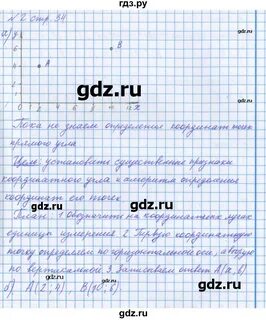 гдз.ру
№ 2 стр. 34
а) y
6
4
2
A
B
0 2 4 6 8 10 12 x
gdz.ru
gdz.ru
Пока не знаем определения координат точек
прямого угла
Цель: установить существенные признаки
координатного угла и алгоритм определения
координат его точек
gdz.ru
gdz.ru
План: 1. обозначить на координатных лучах
единицу измерения 2. Первую координату
точки определяем по горизонтальной оси, а вторую
по вертикальной 3. Записываем ответ A(a, b)
б) A(2; 4), B(10; 6)
gdz.ru
gdz.ru